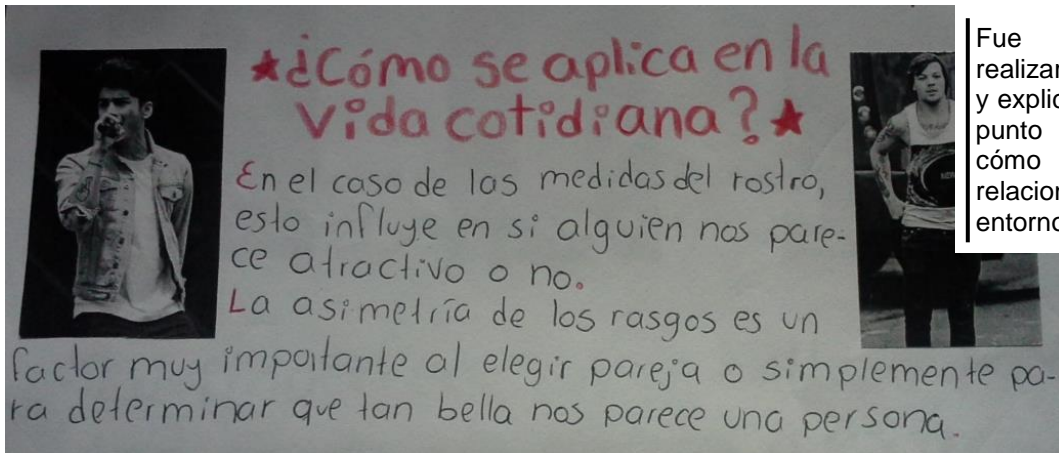 ★¿Cómo se aplica en la
vida cotidiana?★
En el caso de las medidas del rostro,
esto influye en si alguien nos pare-
ce atractivo o no.
La asimetría de los rasgos es un
factor muy importante al elegir pareja o simplemente pa-
ra determinar que tan bella nos parece una persona.
Fue
realizar
y explic
punto
cómo
relacion
entorno